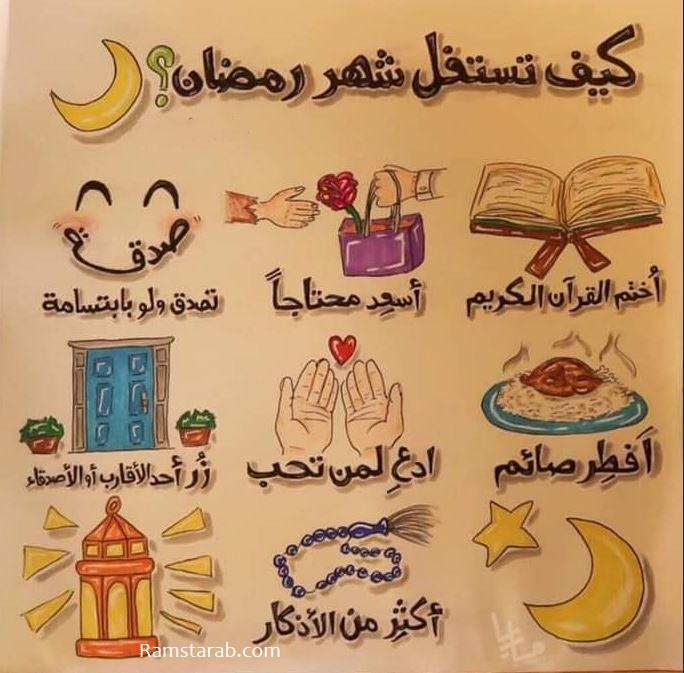 كيف تستغل شهر رمضان؟
أُختم القرآن الكريم
أسعِد محتاجاً
صدقة
تصدق ولو بابتسامة
أَفطِر صائم
ادعِ لمن تحب
زُر أحد الأقارب أو الأصدقاء
أكثِر من الأذكار
Ramstarab.com